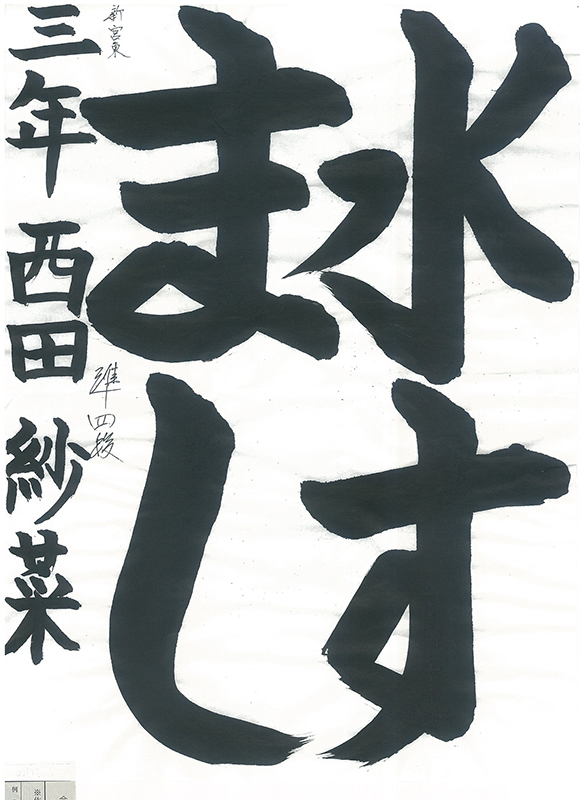 水す
まし
新宮東
準四段
三年 西田 紗菜